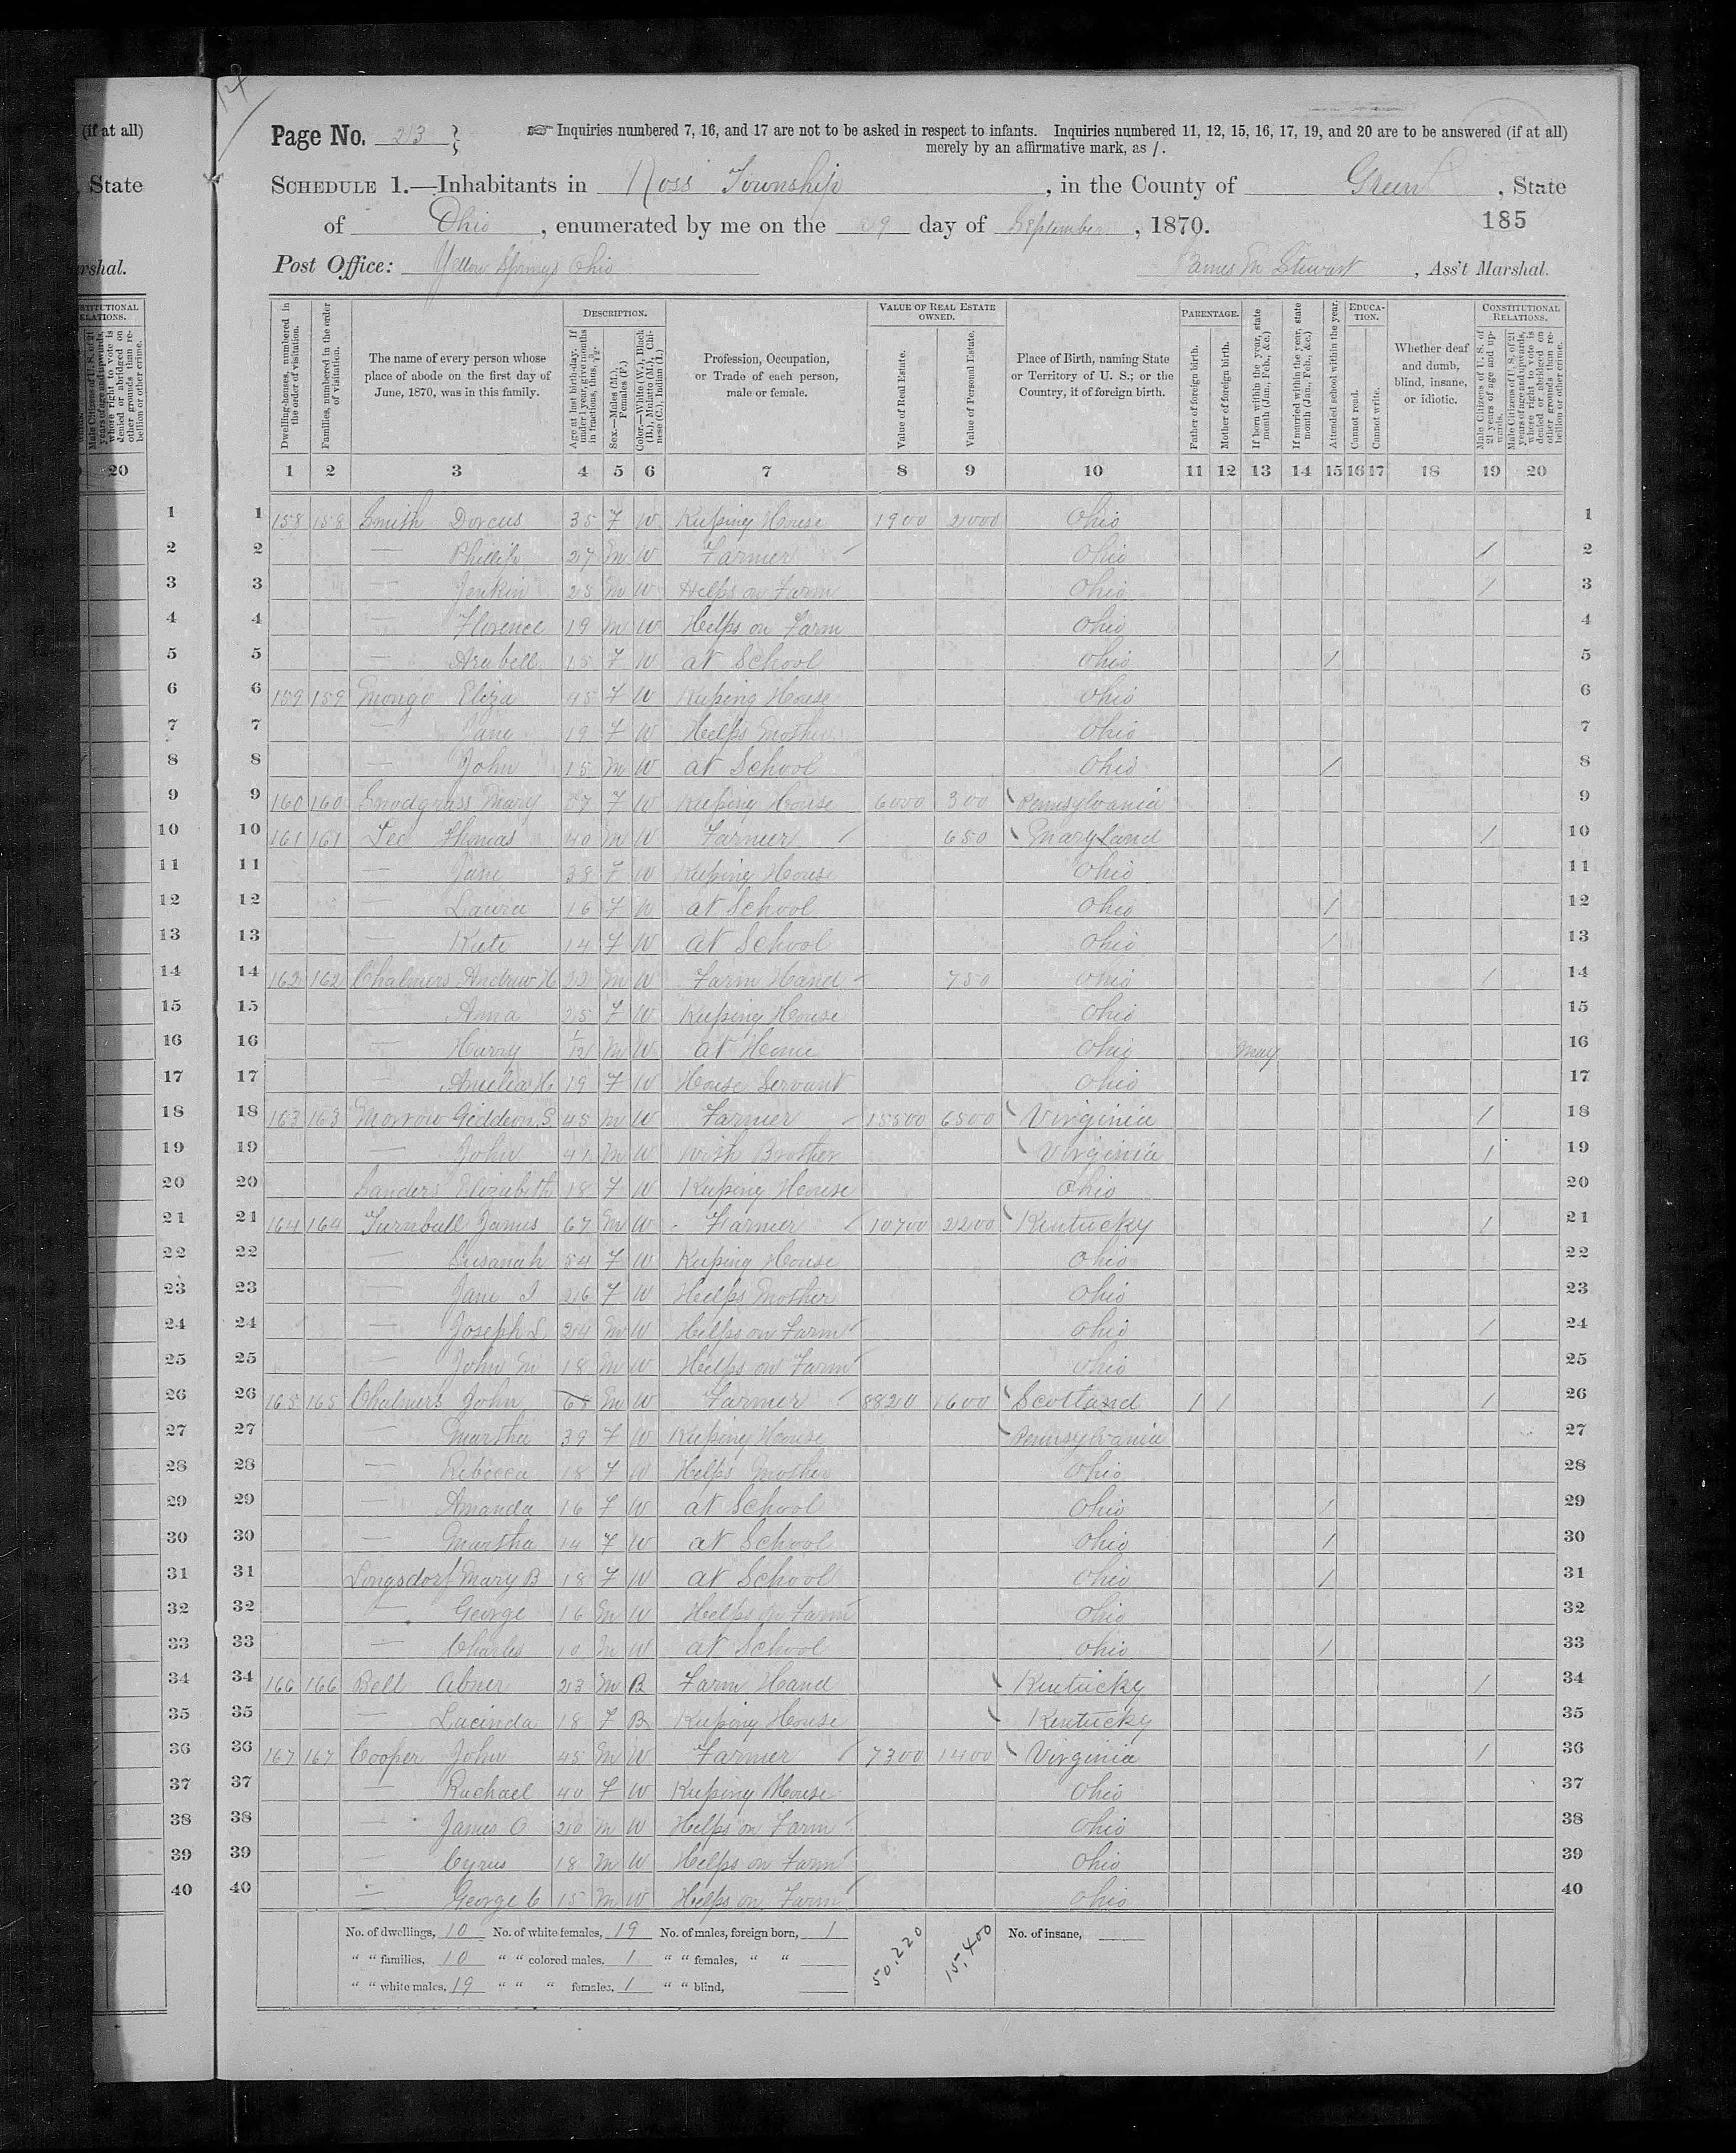 Page No. 23
☞ Inquiries numbered 7, 16, and 17 are not to be asked in respect to infants. Inquiries numbered 11, 12, 15, 16, 17, 19, and 20 are to be answered (if at all)
merely by an affirmative mark, as /.
SCHEDULE 1.—Inhabitants in Ross Township, in the County of Green, State
of Ohio, enumerated by me on the 29 day of September, 1870.
185
Post Office: Yellow Springs Ohio James M Stewart, Ass't Marshal.
Dwelling-houses, numbered in the order of visitation.
Families, numbered in the order of visitation.
The name of every person whose place of abode on the first day of June, 1870, was in this family.
DESCRIPTION.
Age at last birth-day. If under 1 year, give months in fractions, thus, 3/12.
Sex.—Males (M.), Females (F.)
Color.—White (W.), Black (B.), Mulatto (M.), Chinese (C.), Indian (I.)
Profession, Occupation, or Trade of each person, male or female.
VALUE OF REAL ESTATE OWNED.
Value of Real Estate.
Value of Personal Estate.
Place of Birth, naming State or Territory of U. S.; or the Country, if of foreign birth.
PARENTAGE.
Father of foreign birth.
Mother of foreign birth.
If born within the year, state month (Jan., Feb., &c.)
If married within the year, state month (Jan., Feb., &c.)
Attended school within the year.
EDUCATION.
Cannot read.
Cannot write.
Whether deaf and dumb, blind, insane, or idiotic.
CONSTITUTIONAL RELATIONS.
Male Citizens of U. S. of 21 years of age and upwards.
Male Citizens of U. S. of 21 years of age and upwards, where right to vote is denied or abridged on other grounds than rebellion or other crime.
1 2 3 4 5 6 7 8 9 10 11 12 13 14 15 16 17 18 19 20
1 158 158 Smith Dorcus 35 F W Keeping House 1900 2000 Ohio 1
2 — Phillip 27 M W Farmer Ohio / 2
3 — Jenkin 25 M W Helps on Farm Ohio / 3
4 — Florence 19 M W Helps on Farm Ohio 4
5 — Arabell 15 F W at School Ohio / 5
6 159 159 Mongo Eliza 45 F W Keeping House Ohio 6
7 — Jane 19 F W Helps Mother Ohio 7
8 — John 15 M W at School Ohio / 8
9 160 160 Snodgrass Mary 57 F W Keeping House 6000 300 Pennsylvania 9
10 161 161 Lee Thomas 40 M W Farmer 650 Maryland / 10
11 — Jane 38 F W Keeping House Ohio 11
12 — Laura 16 F W at School Ohio / 12
13 — Kate 14 F W at School Ohio / 13
14 162 162 Chalmers Andrew H 22 M W Farm Hand 750 Ohio / 14
15 — Anna 25 F W Keeping House Ohio 15
16 — Harry 1/12 M W at Home Ohio May 16
17 — Amelia H 19 F W House Servant Ohio 17
18 163 163 Morrow Giddeon S 45 M W Farmer 15500 6500 Virginia / 18
19 — John 41 M W with Brother Virginia / 19
20 Sanders Elizabeth 18 F W Keeping House Ohio 20
21 164 164 Turnbull James 67 M W Farmer 10700 2200 Kentucky / 21
22 — Susanah 54 F W Keeping House Ohio 22
23 — Jane I 26 F W Helps Mother Ohio 23
24 — Joseph L 24 M W Helps on Farm Ohio / 24
25 — John M 18 M W Helps on Farm Ohio 25
26 165 165 Chalmers John 68 M W Farmer 8820 1600 Scotland / / / 26
27 — Martha 39 F W Keeping House Pennsylvania 27
28 — Rebecca 18 F W Helps Mother Ohio 28
29 — Amanda 16 F W at School Ohio / 29
30 — Martha 14 F W at School Ohio / 30
31 Longsdorf Mary B 18 F W at School Ohio / 31
32 — George 16 M W Helps on Farm Ohio 32
33 — Charles 10 M W at School Ohio / 33
34 166 166 Bell Abner 23 M B Farm Hand Kentucky / 34
35 — Lucinda 18 F B Keeping House Kentucky 35
36 167 167 Cooper John 45 M W Farmer 7300 1400 Virginia / 36
37 — Rachael 40 F W Keeping House Ohio 37
38 — James O 20 M W Helps on Farm Ohio 38
39 — Cyrus 18 M W Helps on Farm Ohio 39
40 — George C 15 M W Helps on Farm Ohio 40
No. of dwellings, 10 No. of white females, 19 No. of males, foreign born, 1 50,220 15,400 No. of insane,
" " families, 10 " " colored males, 1 " " females, " "
" " white males, 19 " " " females, 1 " " blind,